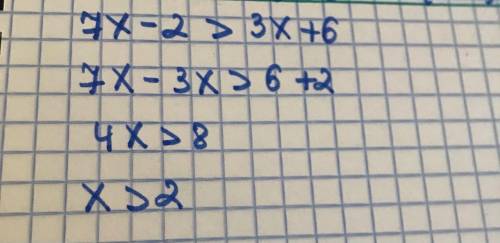 7x-2 > 3x+6
7x - 3x > 6 +2
4x > 8
x > 2